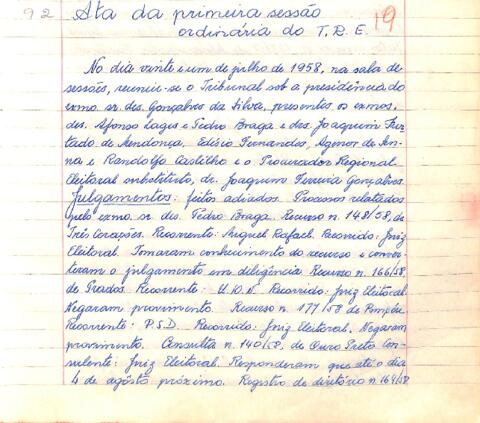 92 Ata da primeira sessão 19
ordinária do T. R. E.
No dia vinte e um de julho de 1958, na sala de
sessões, reuniu-se o Tribunal sob a presidência do
exmo. sr. des. Gonçalves da Silva, presentes os exmos.
des. Afonso Lages e Pedro Braga e drs. Joaquim Fur-
tado de Mendonça, Edésio Fernandes, Agenor de Sen-
na e Randolfo Castilho e o Procurador Regional
Eleitoral substituto, dr. Joaquim Ferreira Gonçalves.
Julgamentos: feitos adiados. Processos relatados
pelo exmo. sr. des. Pedro Braga. Recurso n. 148/58, de
Três Corações. Recorrente: Miguel Rafael. Recorrido: Juiz
Eleitoral. Tomaram conhecimento do recurso e conver-
teram o julgamento em diligência. Recurso n. 166/58,
de Prados. Recorrente: U.D.N. Recorrido: Juiz Eleitoral.
Negaram provimento. Recurso n. 177/58 de Pompéu.
Recorrente: P.S.D. Recorrido: Juiz Eleitoral. Negaram
provimento. Consulta n. 140/58, de Ouro Preto. Con-
sulente: Juiz Eleitoral. Responderam que até o dia
4 de agôsto próximo. Registro de diretório n. 164/58